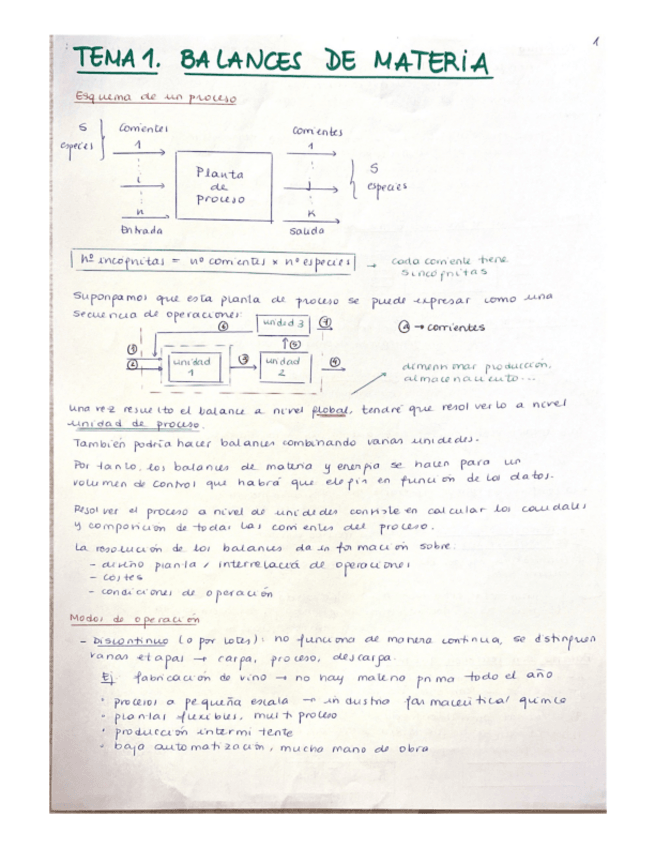 1
TEMA 1. BALANCES DE MATERIA
Esquema de un proceso
S especies
corrientes
1
i
n
Entrada
Planta de proceso
corrientes
1
j
K
salida
S especies
nº incógnitas = nº corrientes x nº especies → cada corriente tiene S incógnitas
Supongamos que esta planta de proceso se puede expresar como una
secuencia de operaciones:
6
unidad 3
7
5
1
2
unidad 1
3
unidad 2
4
→ corrientes
dimensionar producción,
almacenamiento...
una vez resuelto el balance a nivel global, tendré que resolverlo a nivel
unidad de proceso.
También podría hacer balances combinando varias unidades.
Por tanto, los balances de materia y energía se hacen para un
volumen de control que habrá que elegir en función de los datos.
Resolver el proceso a nivel de unidades consiste en calcular los caudales
y composición de todas las corrientes del proceso.
La resolución de los balances da información sobre:
- diseño planta / interrelación de operaciones
- costes
- condiciones de operación
Modos de operación
- Discontinuo (o por lotes): no funciona de manera continua, se distinguen
varias etapas → carga, proceso, descarga.
Ej fabricación de vino → no hay materia prima todo el año
· procesos a pequeña escala → industria farmaceútica / química
· plantas flexibles, multiproceso
· producción intermitente
· baja automatización, mucha mano de obra